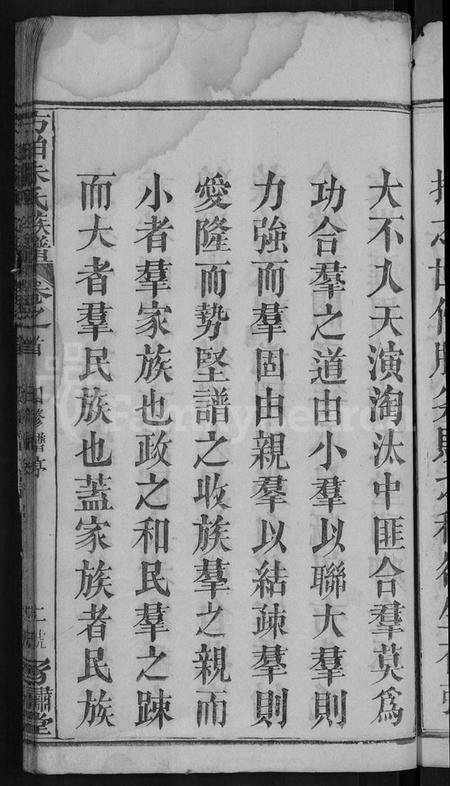 大不入天演淘汰中匪合羣莫爲
功合羣之道由小羣以聯大羣則
力強而羣固由親羣以結疎羣則
愛隆而勢堅譜之收族羣之親而
小者羣家族也政之和民羣之踈
而大者羣民族也蓋家族者民族
朱氏族譜 卷之首 四修譜序 二
FamilySearch